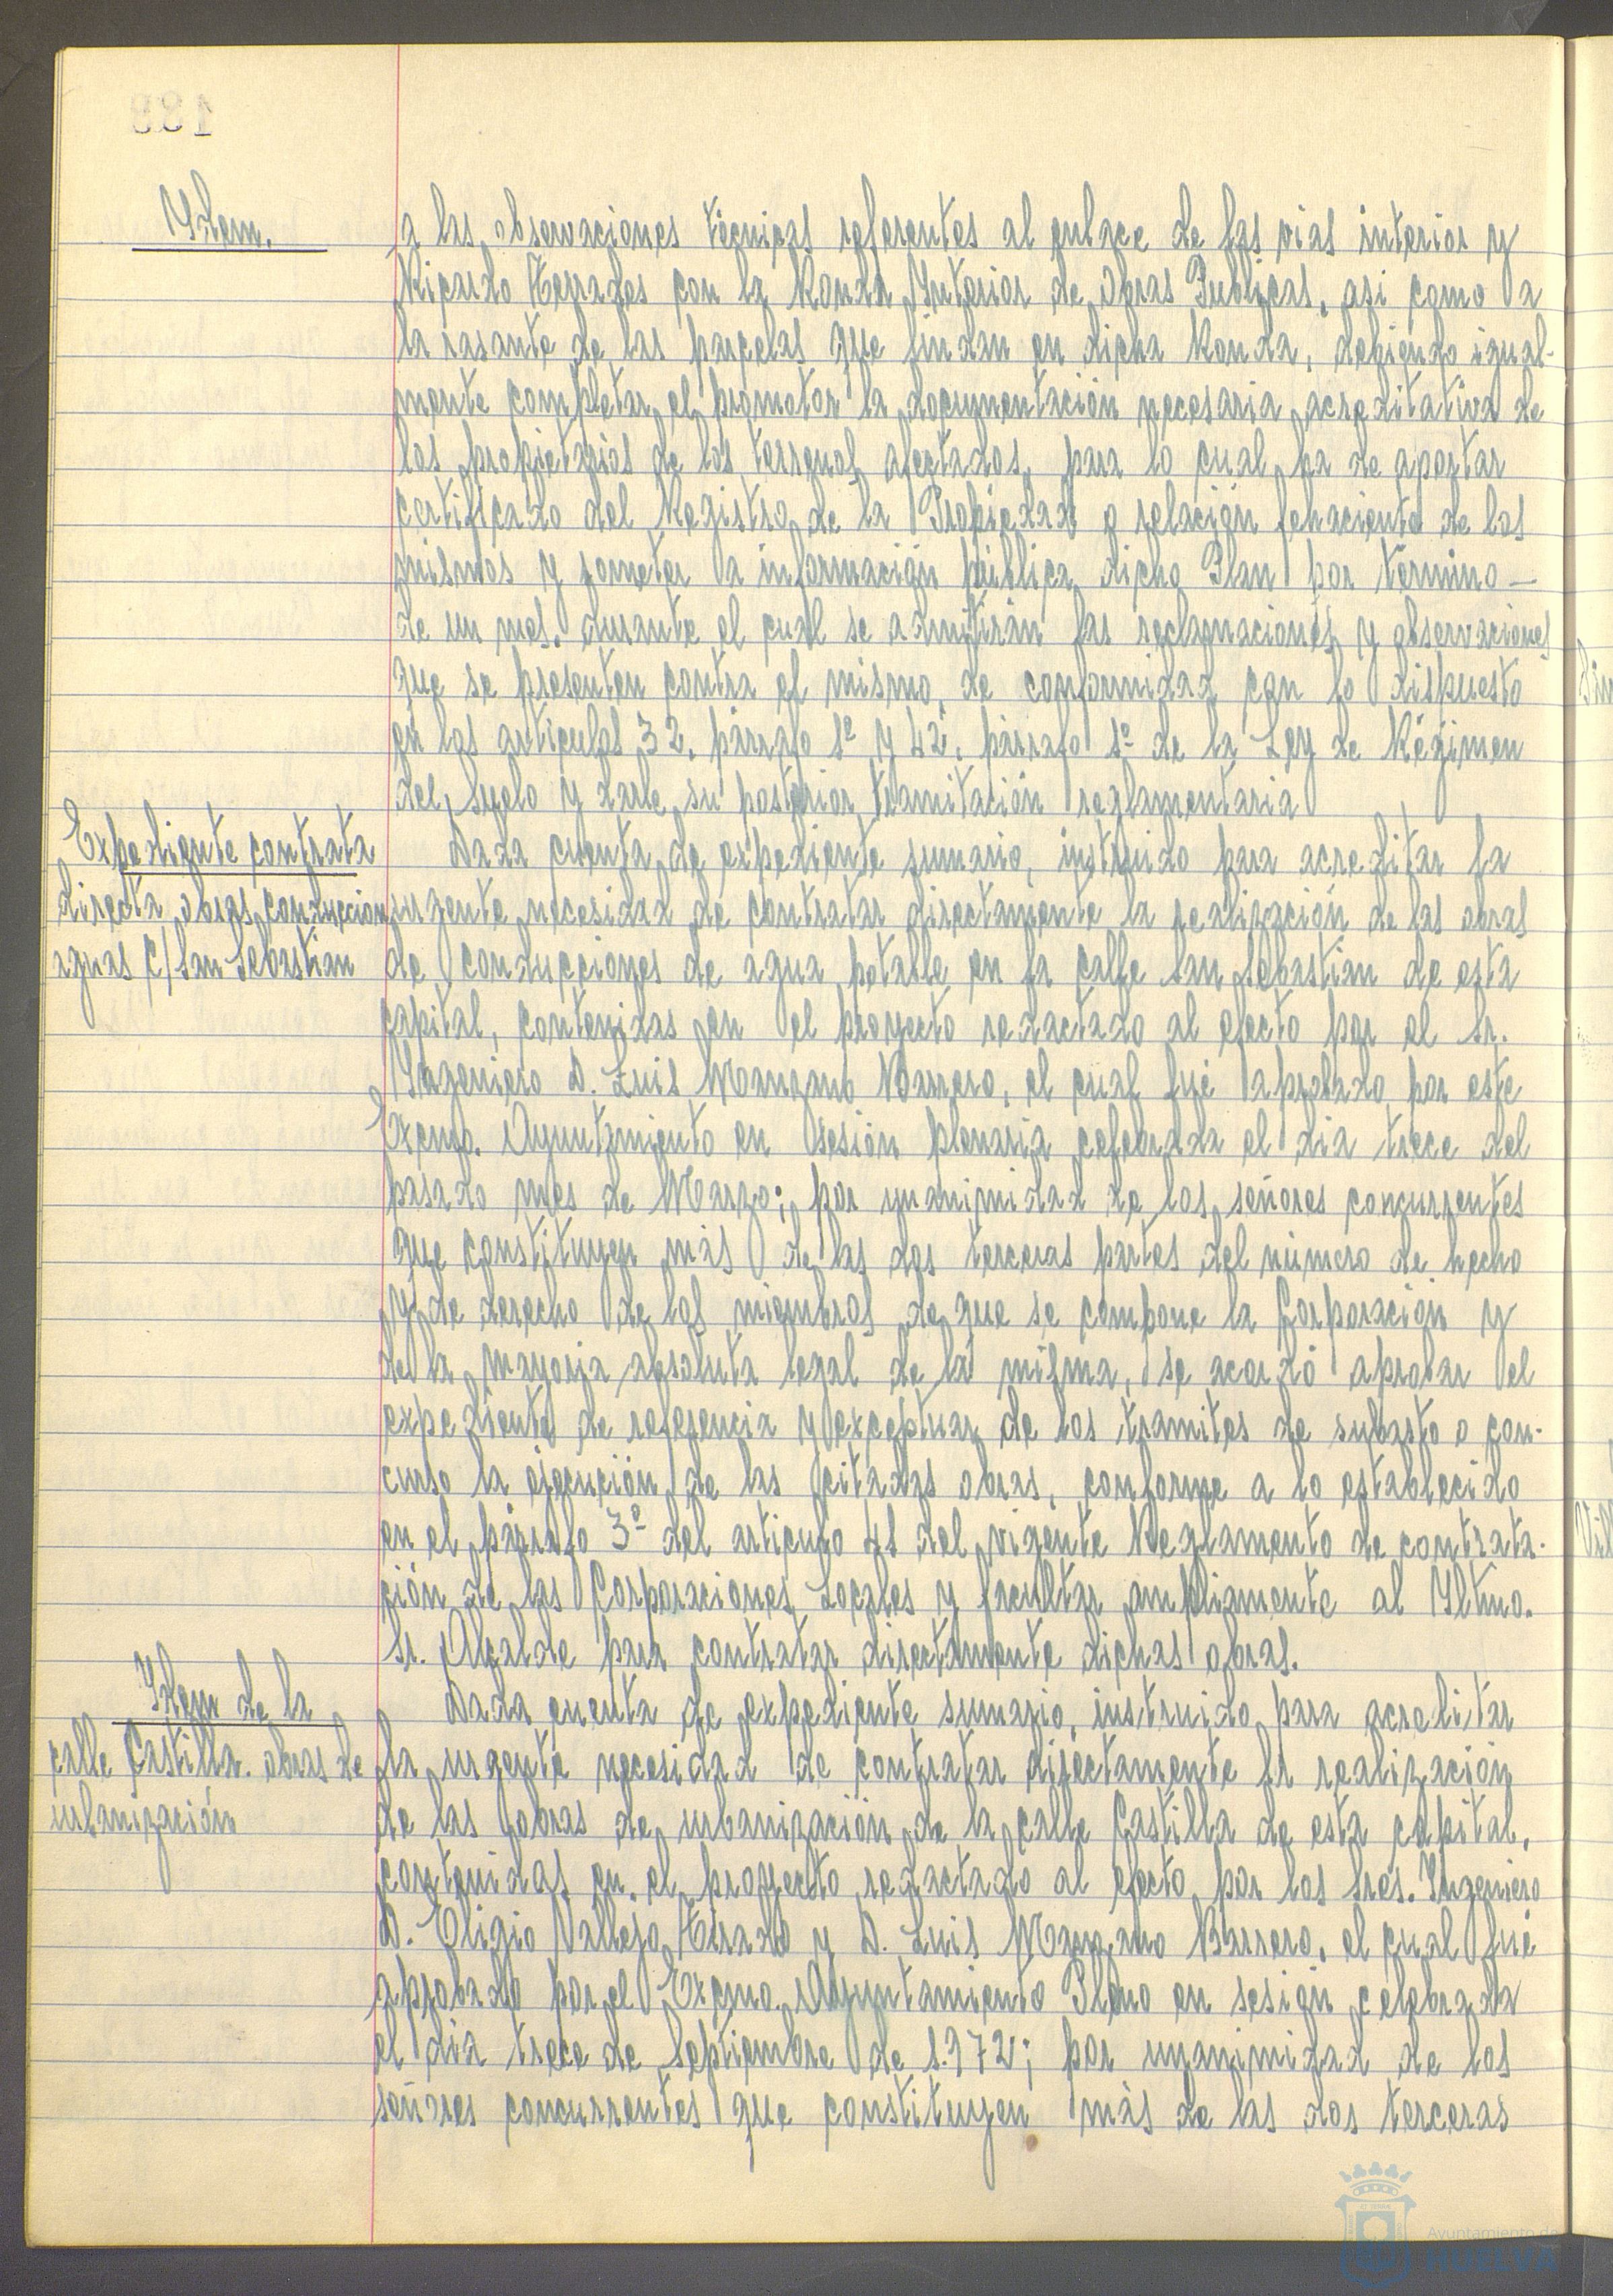 Ydem.
a las observaciones técnicas referentes al enlace de las vias interior y
Ricardo Terrades con la Ronda Ynterior de Obras Publicas, asi como a
la rasante de las parcelas que lindan en dicha Ronda, debiendo igual-
mente completar el promotor la documentación necesaria acreditativa de
los propietarios de los terrenos afectados, para lo cual ha de aportar
certificado del Registro de la Propiedad o relación fehaciente de los
mismos y someter a información pública dicho Plan por término
de un mes, durante el cual se admitirán las reclamaciones y observaciones
que se presenten contra el mismo, de conformidad con lo dispuesto
en los articulos 32, párrafo 1º y 42, párrafo 1º de la Ley de Régimen
del Suelo y darle su posterior tramitación reglamentaria
Expediente contrata
directa obras conduccion
aguas C/ San Sebastian
Dada cuenta de expediente sumario, instruido para acreditar la
urgente necesidad de contratar directamente la realización de las obras
de conducciones de agua potable en la calle San Sebastian de esta
capital, contenidas en el proyecto redactado al efecto por el Sr.
Yngeniero D. Luis Manzano Barrero, el cual fué aprobado por este
Excmo. Ayuntamiento en sesión plenaria celebrada el dia trece del
pasado mes de Marzo; por unanimidad de los señores concurrentes
que constituyen más de las dos terceras partes del número de hecho
y de derecho de los miembros de que se compone la Corporación y
de la mayoria absoluta legal de la misma, se acordó aprobar el
expediente de referencia y exceptuar de los tramites de subasta o con-
curso la ejecución de las citadas obras, conforme a lo establecido
en el párrafo 3º del articulo 41 del vigente Reglamento de contrata-
ción de las Corporaciones Locales y facultar ampliamente al Yltmo.
Sr. Alcalde para contratar directamente dichas obras.
Ydem de la
calle Castilla. obras de
urbanización
Dada cuenta de expediente sumario, instruido para acreditar
la urgente necesidad de contratar directamente la realización
de las obras de urbanización de la calle Castilla de esta capital,
contenidas en el proyecto redactado al efecto por los Sres. Yngeniero
D. Eligio Vallejo Tirado y D. Luis Manzano Barrero, el cual fué
aprobado por el Excmo. Ayuntamiento Pleno en sesión celebrada
el dia trece de Septiembre de 1.972; por unanimidad de los
señores concurrentes que constituyen más de las dos terceras
Ayuntamiento de
HUELVA